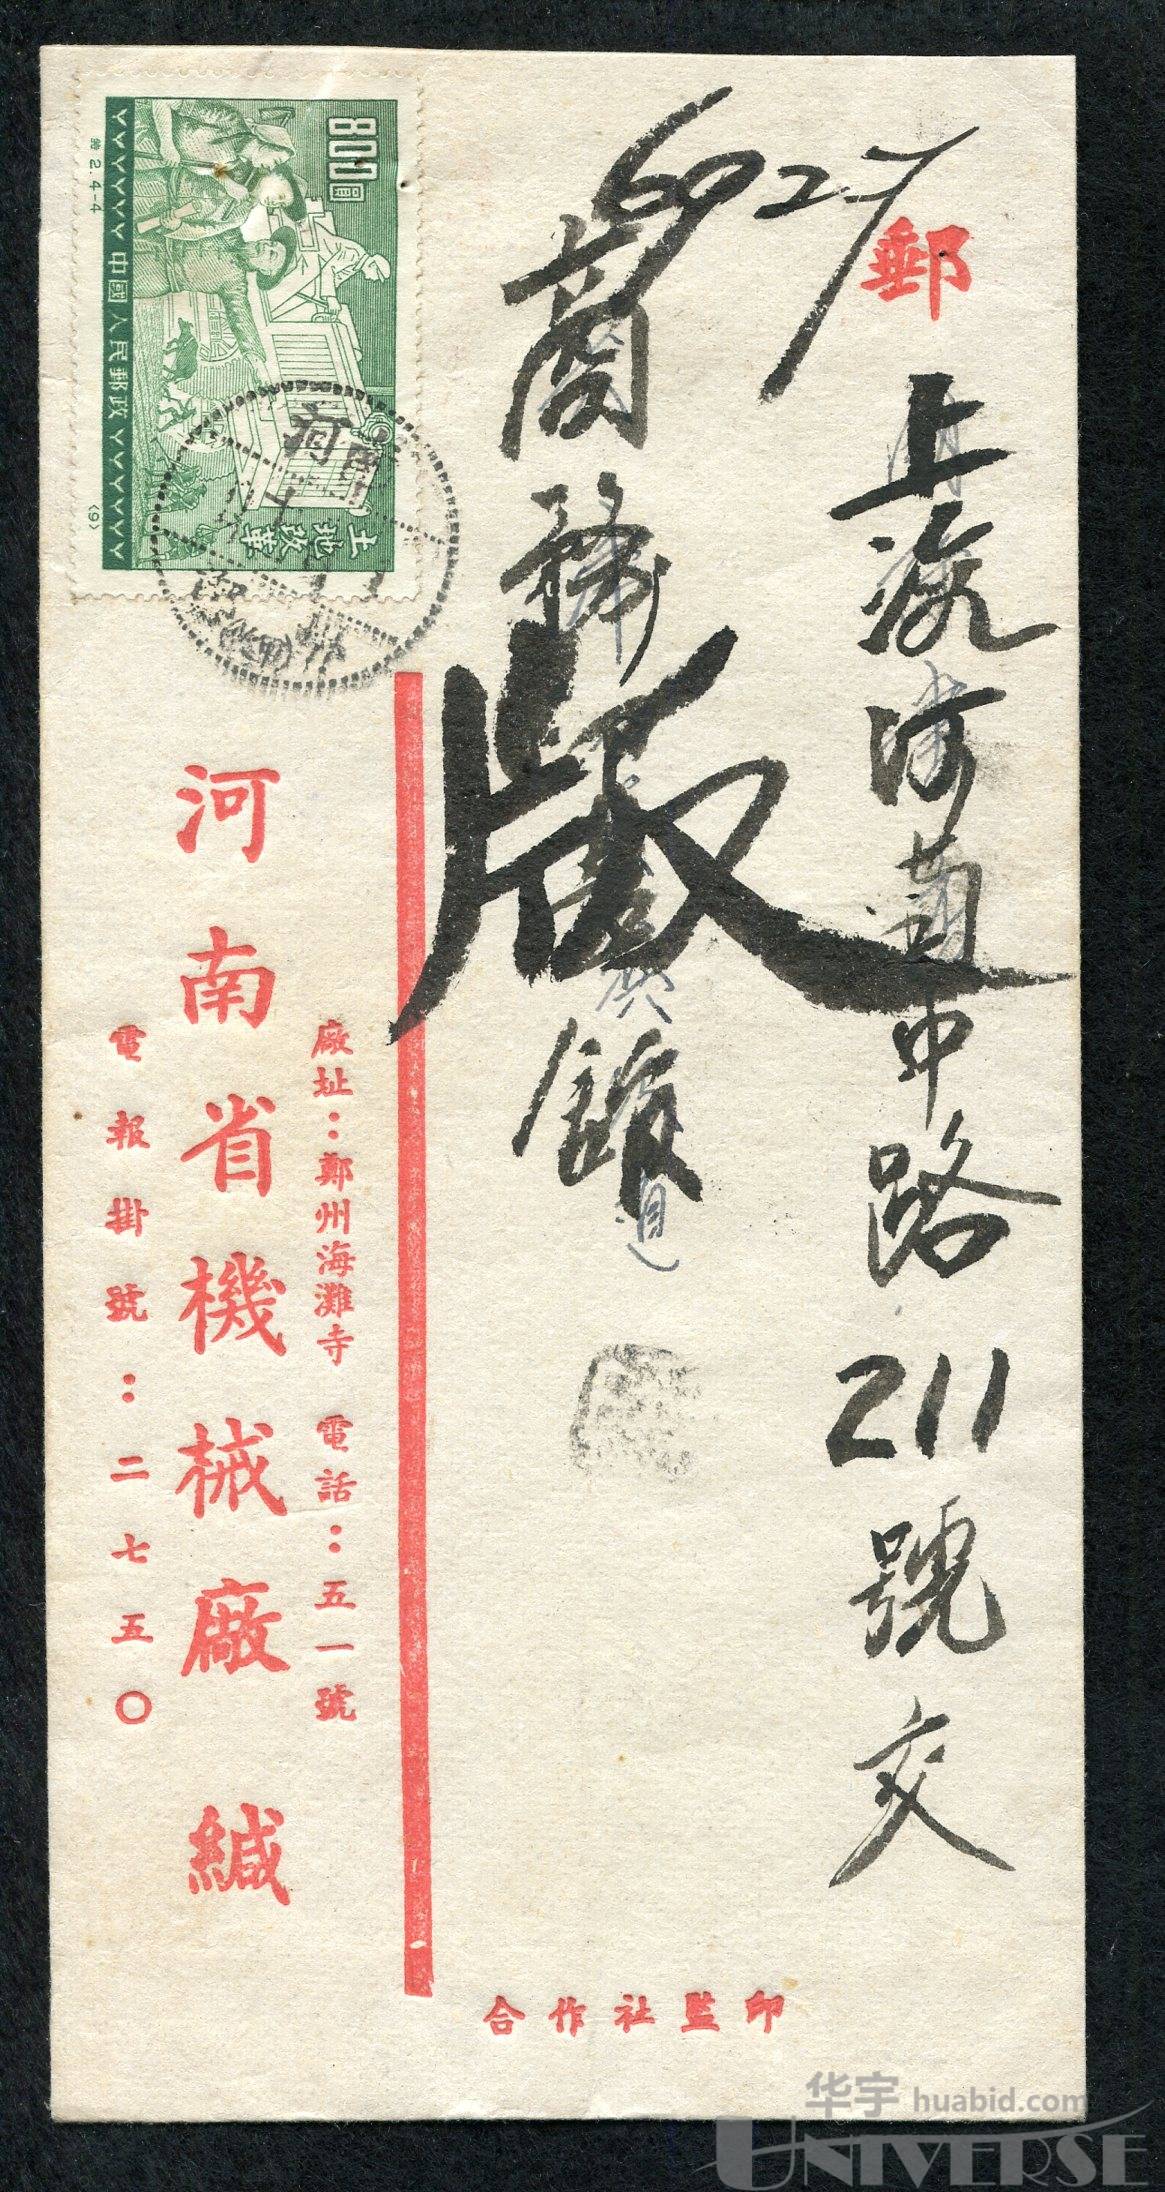 郵
6927
上海河南中路211號交
商務印書館
版
廠址：鄭州海灘寺 電話：五一號
河南省機械廠緘
電報掛號：二七五〇
合作社監印
800圓
土地改革
中國人民郵政
特2.4-4
(9)
河南
华宇 huabid.com
UNIVERSE